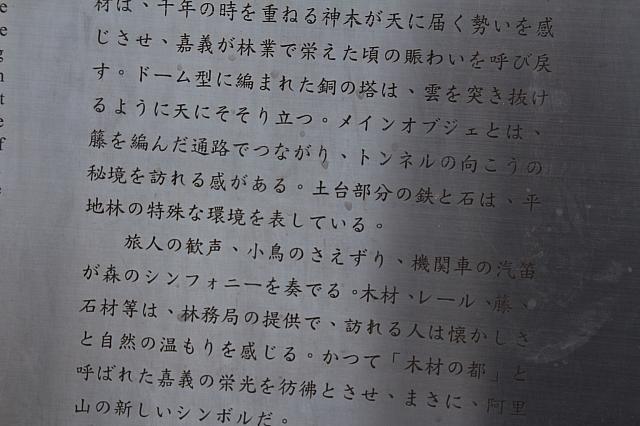 材は、千年の時を重ねる神木が天に届く勢いを感
じさせ、嘉義が林業で栄えた頃の賑わいを呼び戻
す。ドーム型に編まれた銅の塔は、雲を突き抜け
るように天にそそり立つ。メインオブジェとは、
藤を編んだ通路でつながり、トンネルの向こうの
秘境を訪れる感がある。土台部分の鉄と石は、平
地林の特殊な環境を表している。
旅人の歓声、小鳥のさえずり、機関車の汽笛
が森のシンフォニーを奏でる。木材、レール、藤、
石材等は、林務局の提供で、訪れる人は懐かしさ
と自然の温もりを感じる。かつて「木材の都」と
呼ばれた嘉義の栄光を彷彿とさせ、まさに、阿里
山の新しいシンボルだ。